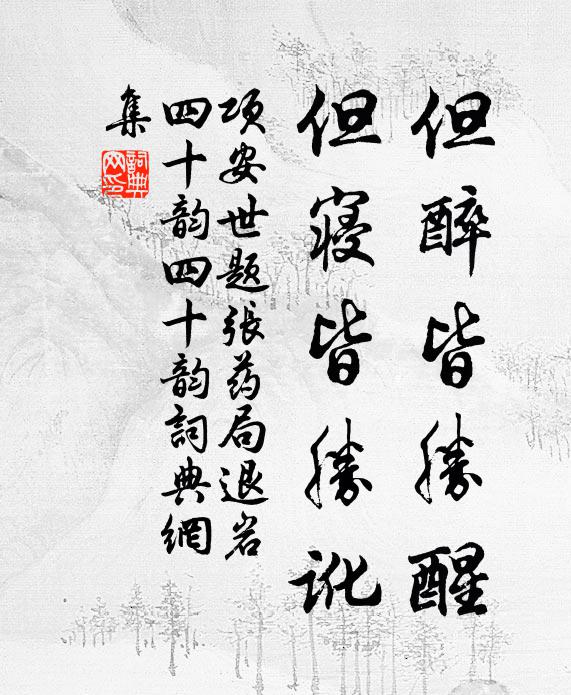 但醉皆勝醒
但寝皆勝訛
项安世题張药局退岩
四十韵四十韵詞典網
集
詞典网印